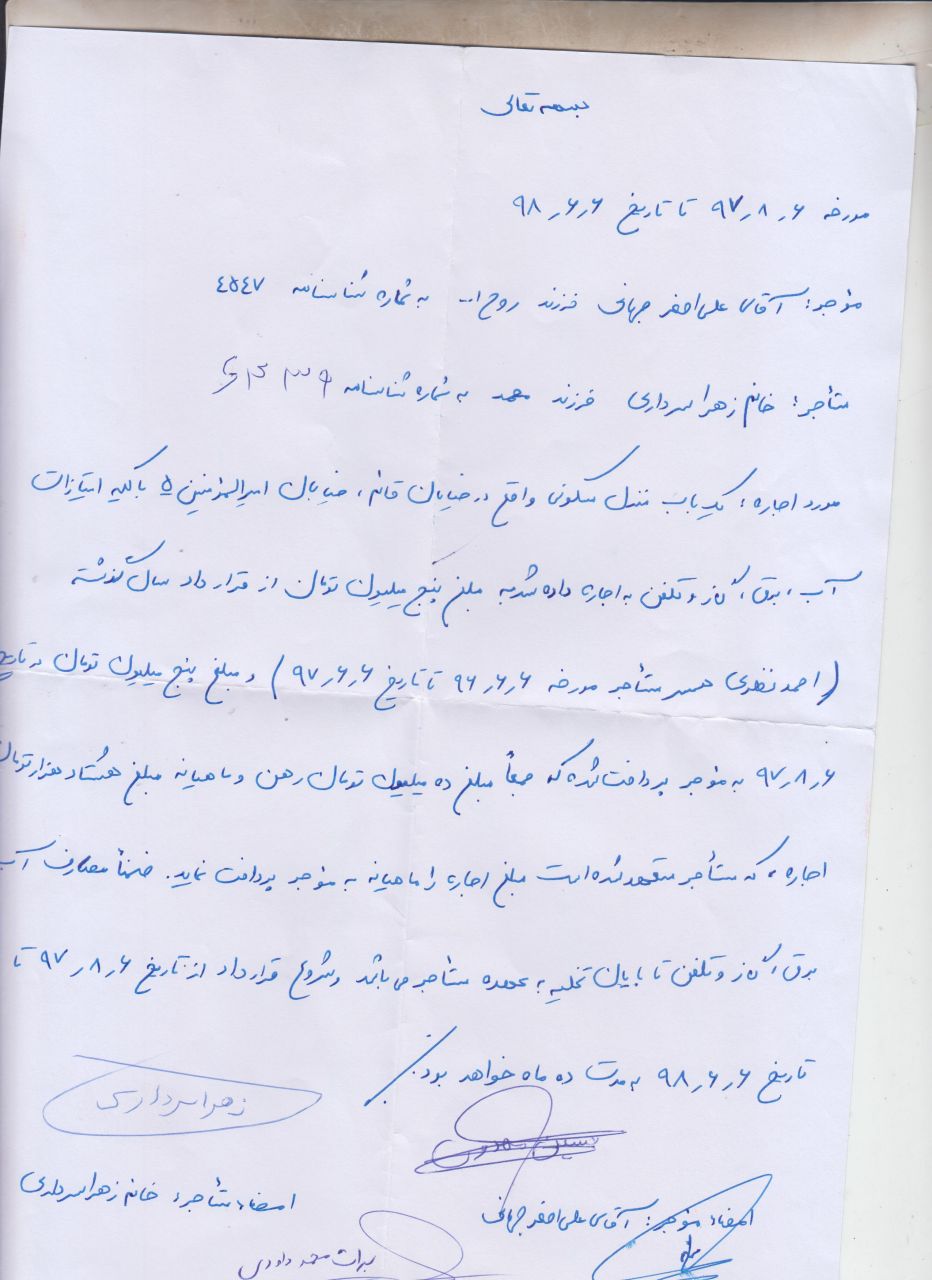 بسمه تعالی
مورخه ۹۷٫۸٫۶ تا تاریخ ۹۸٫۶٫۶
مؤجر: آقای علی اصغر جهانی فرزند روح ا... به شماره شناسنامه ۴۵۴۷
متأجر: خانم زهرا سرداری فرزند محمد به شماره شناسنامه
مورد اجاره: یک باب منزل مسکونی واقع در خیابان قائم، خیابان امیرالمؤمنین ۵ با کلیه امتیازات
آب، برق، گاز و تلفن به اجاره داده شد به مبلغ پنج میلیون تومان از قرار داد سال گذشته
(احمد نظری همسر مستأجر مورخه ۹۶٫۶٫۶ تا تاریخ ۹۷٫۶٫۶) و مبلغ پنج میلیون تومان در تاریخ
۹۷٫۸٫۶ به مؤجر پرداخت شده که جمعاً مبلغ ده میلیون تومان رهن و ماهیانه مبلغ هشتاد هزار تومان
اجاره، که مستأجر متعهد شده است مبلغ اجاره را ماهیانه به مؤجر پرداخت نماید. ضمناً مصارف آب
برق، گاز و تلفن تا پایان تخلیه به عهده مستأجر می باشد و شروع قرار داد از تاریخ ۹۷٫۸٫۶ تا
تاریخ ۹۸٫۶٫۶ به مدت ده ماه خواهد بود.
زهرا سرداری
امضاء مؤجر: آقای علی اصغر جهانی
امضاء مستأجر: خانم زهرا سرداری
برات محمد داودی